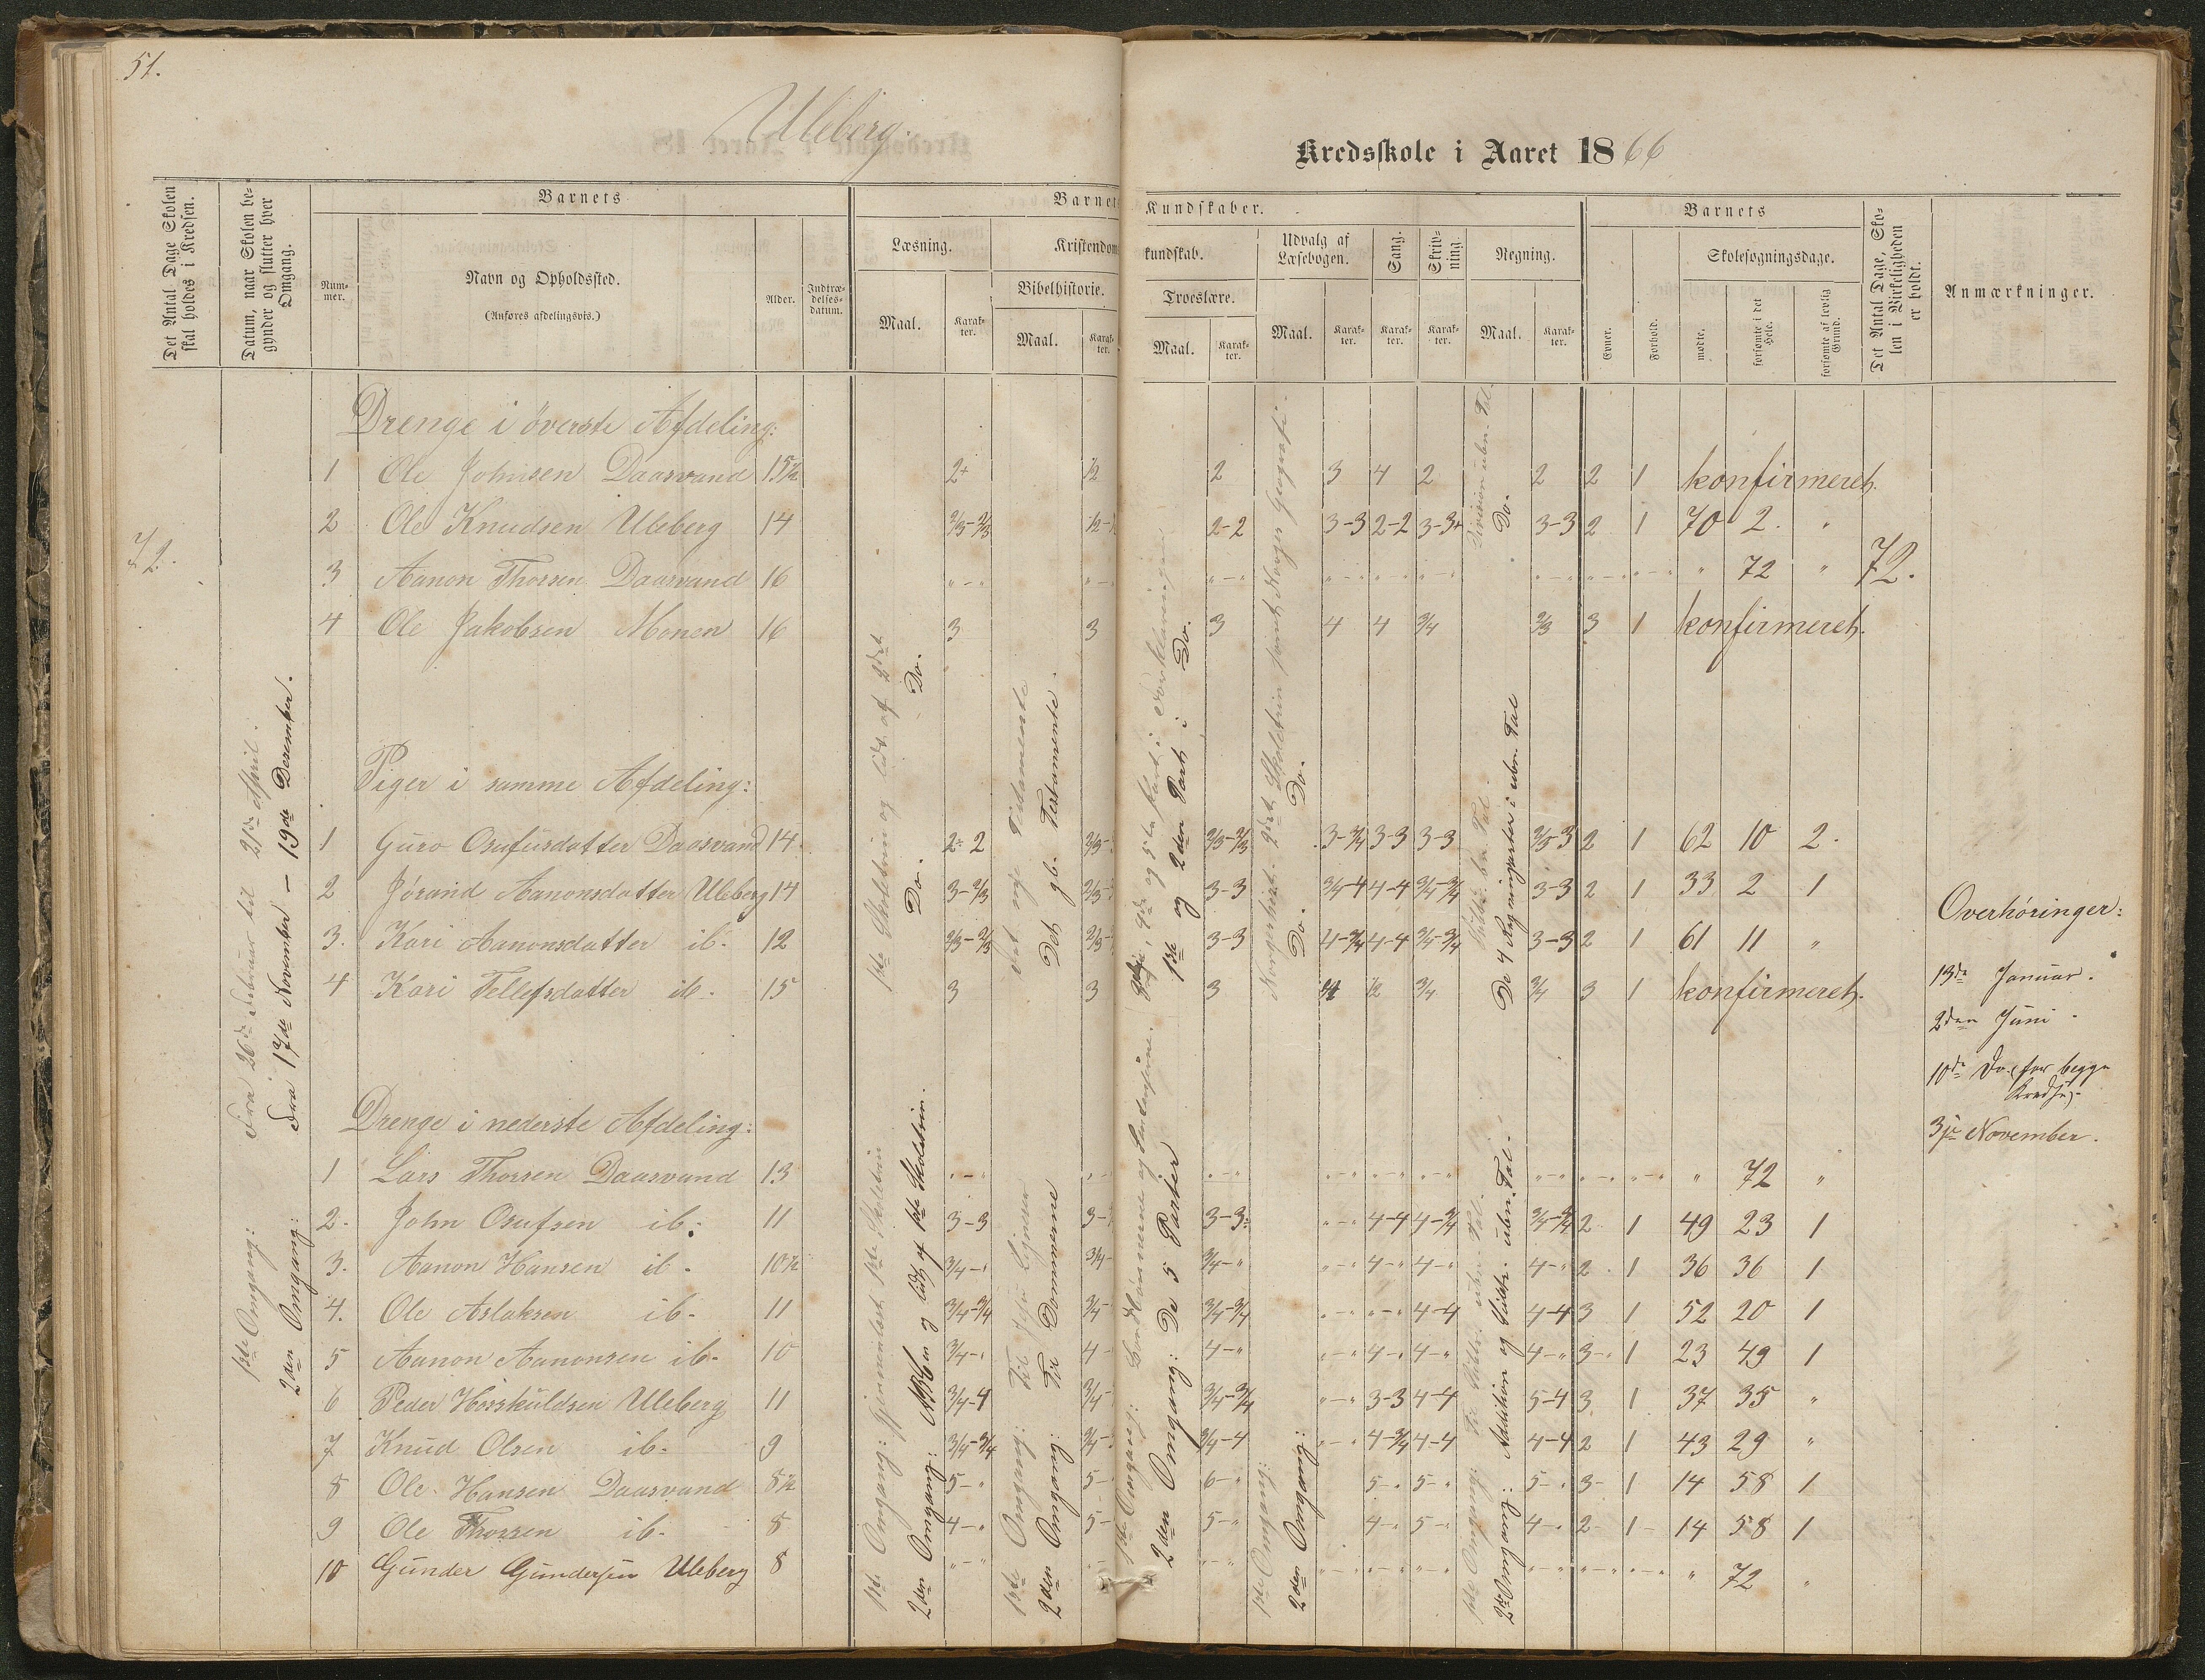 51.
Uleberg.
Kredsskole i Aaret 1866
Det Antal Dage Skolen skal holdes i Kredsen.
Datum, naar Skolen begynder og slutter hver Omgang.
Barnets
Num-mer.
Navn og Opholdssted.
(Anføres afdelingsvis.)
Alder.
Indtræ-delses-datum.
Barnets
Læsning.
Maal.
Karak-ter.
Kristendoms
Bibelhistorie.
Maal.
Karak-ter.
Kundskaber.
kundskab.
Troeslære.
Maal.
Karak-ter.
Udvalg af Læsebogen.
Maal.
Karak-ter.
Sang.
Karak-ter.
Skriv-ning.
Karak-ter.
Regning.
Maal.
Karak-ter.
Barnets
Evner.
Forhold.
Skolesøgningsdage.
mødte.
forsømte i det Hele.
forsømte af lovlig Grund.
Det Antal Dage, Sko-len i Virkeligheden er holdt.
Anmærkninger.
72.
1ste Omgang: Fra 26de Februar til 21de April.
2den Omgang: Fra 17de November – 19de December.
Drenge i överste Afdeling:
1 Ole Johnsen Daasvand 15½ 2+ ½ 2 3 4 2 2 2 1 konfirmeret.
2 Ole Knudsen Uleberg 14 2/3-2/3 2-2 3-3 2-2 3-3+ 3-3 2 1 70 2. "
3 Aanon Thorsen Daasvand 16 " 72 " 72.
4 Ole Jakobsen Monen 16 3 3 3 4 4 3/4 2/3 3 1 konfirmeret.
Piger i samme Afdeling:
1 Guro Osufusdatter Daasvand 14 2- 2 2/3-2/3 3-3/4 3-3 3-3 2/3-3 2 1 62 10 2.
2 Jörand Aanonsdatter Uleberg 14 3-2/3 3-3 3/4-4 4-4 3/4-3/4 3-3 2 1 33 2 1
3. Kari Aanonsdatter ib. 12 2/3-2/3 3-3 4-3/4 4-4 3/4-3/4 3-3 2 1 61 11 "
4 Kari Tellefsdatter ib. 15 3 3 3 3/4 3/4 3 1 konfirmeret.
Drenge i nederste Afdeling:
1 Lars Thorsen Daasvand 13 " 72 "
2. John Osufsen ib. 11 3-3 3-3 4-4 4-3/4 3/4-3/4 2 1 49 23 1
3. Aanon Hansen ib. 10½ 3/4-" 3/4-" 4-" 4-" 4-" 2. 1 36 36 1
4. Ole Aslaksen ib. 11 3/4-3/4 3/4-3/4 4-4 4-4 3 1 52 20 1
5 Aanon Aanonsen ib. 10 3/4-" 4- 4-" 4-" 4-" 4-" 3-" 1 23 49 1
6 Peder Horskuldsen Uleberg 11 3/4-4 3/4-3/4 3-3 4-4 5-4 3 1 37 35 "
7 Knud Olsen ib. 9 3/4-3/4 3/4-4 4-3/4 4-4 4-4 2 1 43 29 "
8 Ole Hansen Daasvand 8½ 5-" 5- 6-" 5-" 5-" 5-" 3- 1 14 58 1
9 Ole Thorsen ib. 8 4-" 5- 5-" 4-" 5-" 4-" 2- 1- 14 58 1
10 Gunder Gundersen Uleberg 8 " 72 "
1ste Skoletrin og lidt af 2det
Do. Do.
1ste Omgang: Gjennemlæst 1ste Skoletrin
2den Omgang: ABC'en og lidt af 1ste Skoletrin.
Det nye Testamente
Det gl. Testamente.
1ste Omgang: Til
2den Omgang: Til Dommerne
1ste og 2den Part i Do.
1ste Omgang:
2den Omgang: De 5 Parter
Norgeshist. 2det Skoletrin samt Norges Geografi.
Do. Do.
1ste Omgang:
2den Omgang:
Division ubn. Tal.
Do.
De 4 Regningsarter i ubn. Tal
1ste Omgang: ubn. Tal.
2den Omgang: Addition og Subtr. ubn. Tal.
Overhøringer:
13de Januar.
2den Juni.
10de Do. (for begge Kredse).
3die November.